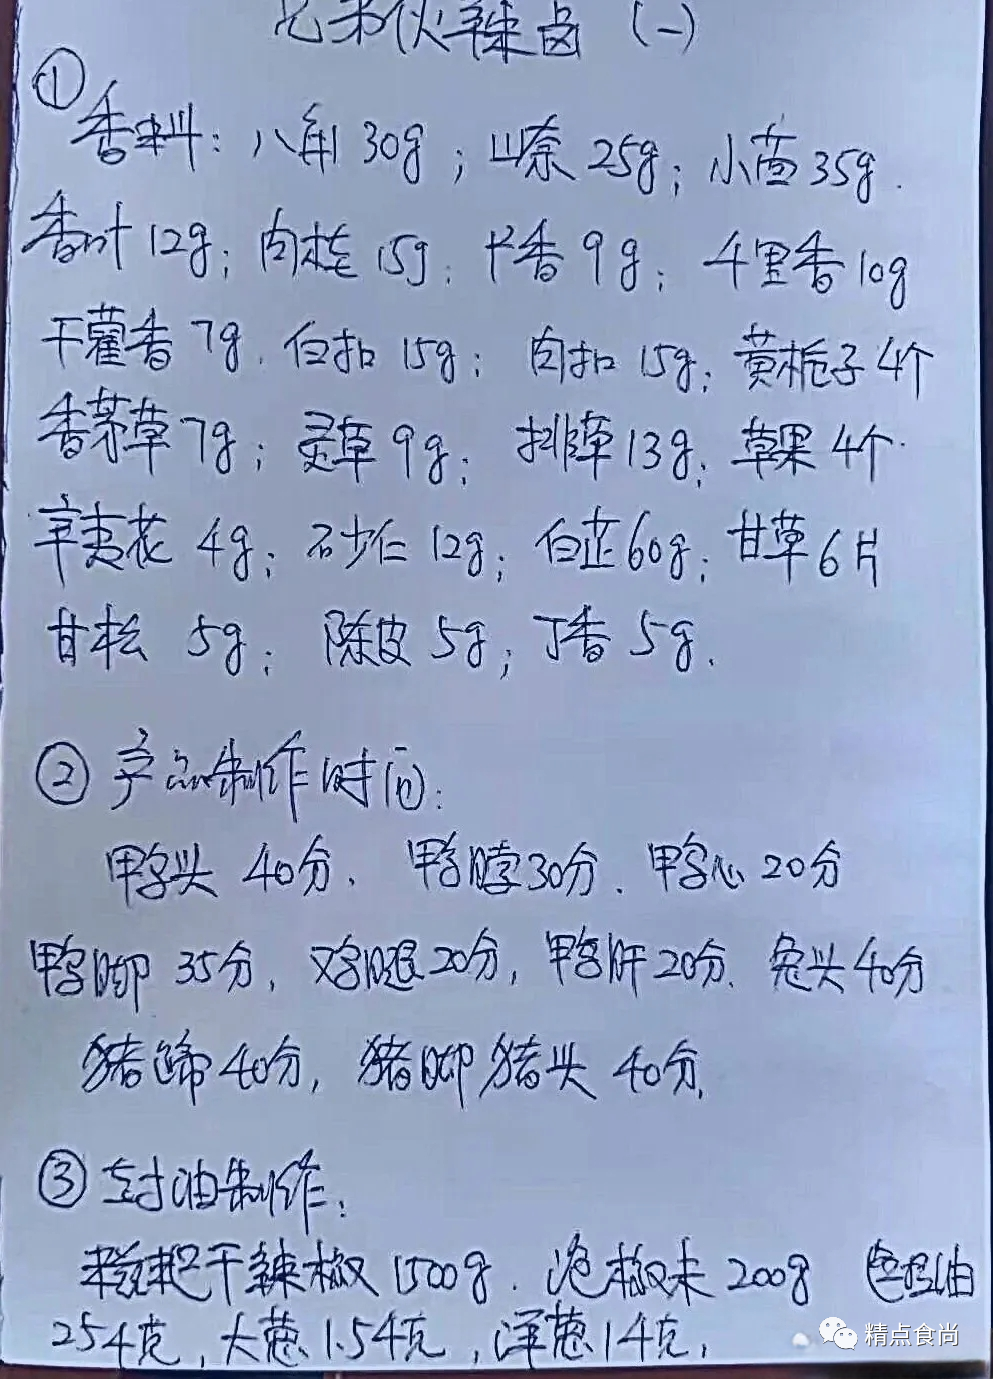 兄弟伙辣卤（一）
①
香料：八角30g；山奈25g；小茴35g.
香叶12g；肉桂15g；木香9g；千里香10g
干藿香7g.白扣15g；肉扣15g；黄栀子4个
香茅草7g；灵草9g；排草13g；草果4个.
辛夷花4g；石少仁12g；白芷60g；甘草6片
甘松5g；陈皮5g；丁香5g.
②产品制作时间：
鸭头40分、鸭脖30分.鸭心20分
鸭脚35分，鸡腿20分，鸭肝20分.兔头40分
猪蹄40分，猪脚猪头40分.
③封油制作：
糍粑干辣椒1500g.泡椒末200g 色拉油
25斤克，大葱1.5斤克，洋葱1斤克，
精点食尚